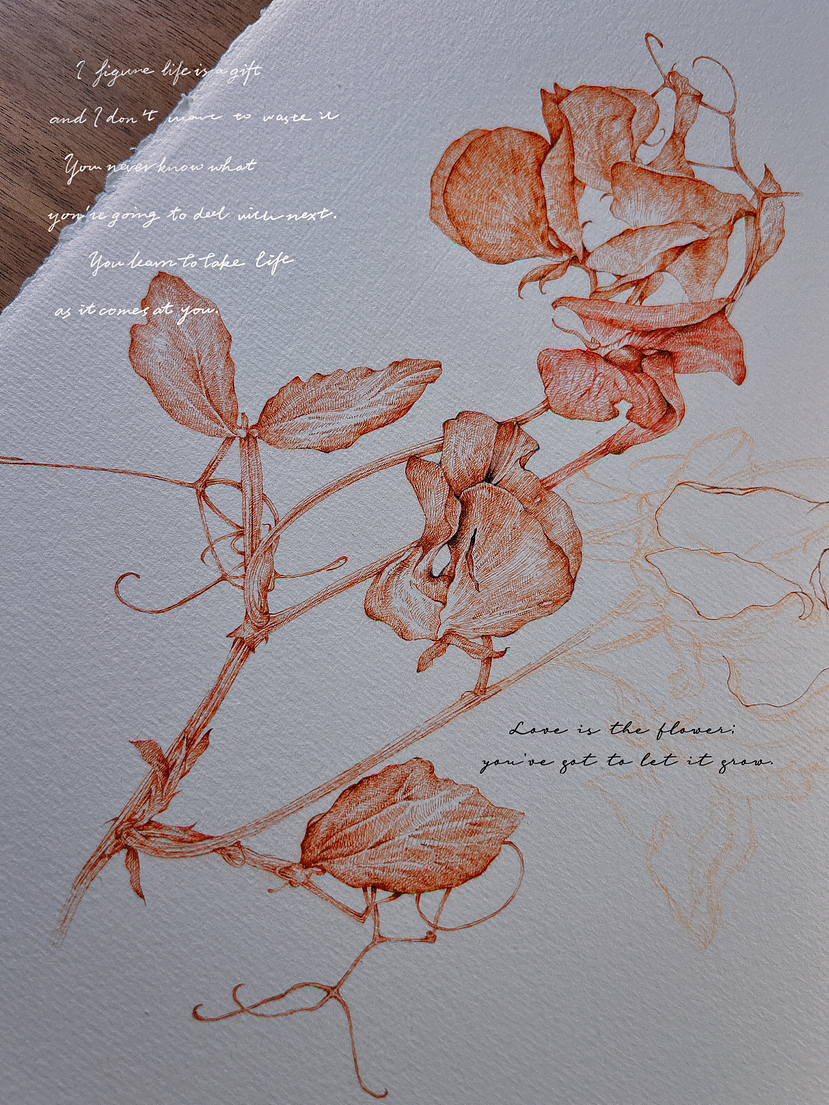 I figure life is a gift
and I don't to waste it
You never know what
you're going to deel with next.
You learn to take life
as it comes at you.
Love is the flower;
you've got to let it grow.